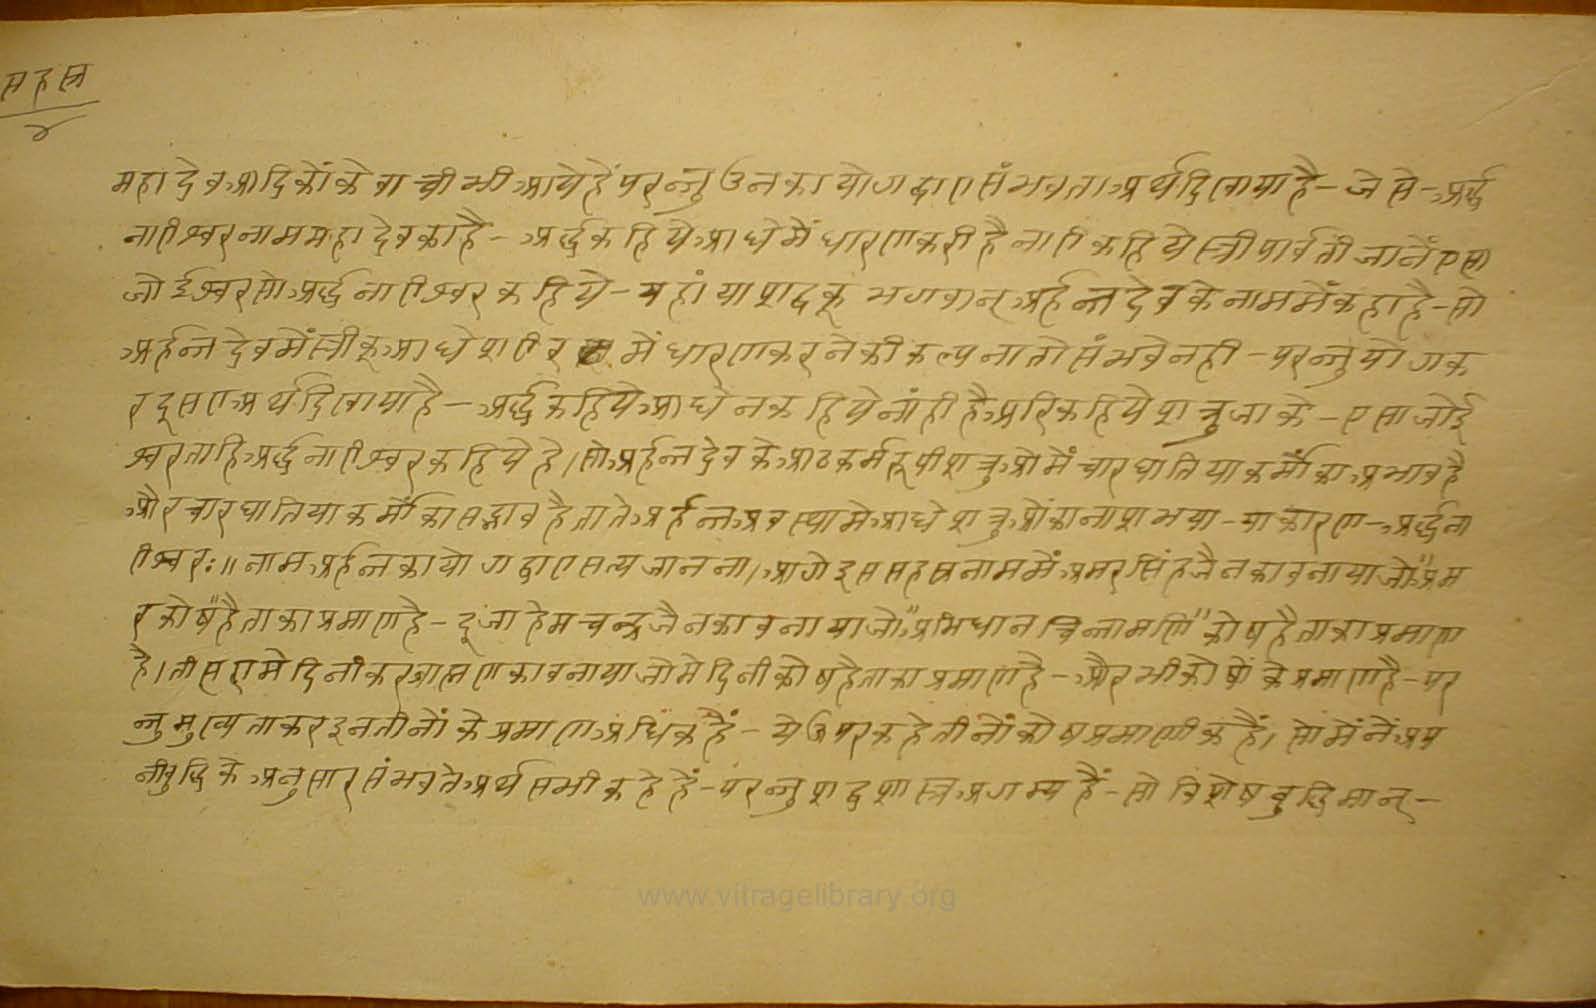 सहस्र
४
महादेव आदिकों के वाची भी आये हें परन्तु उनका योगद्वारा संभवता अर्थ दिखाया है – जेसे – अर्द्ध
नारीश्वर नाम महादेव का है – अर्द्ध कहिये आधे में धारण करी है नारी कहिये स्त्री पार्वती जानें एसा
जो ईश्वर सो अर्द्धनारीश्वर कहिये – यहां या शब्द कू भगवान् अर्हन्त देव के नाम में कहा है – सो
अर्हन्त देव में स्त्री कू आधे शरीर में धारण करने की कल्पना तो संभवे नही – परन्तु योग क
र दूसरा अर्थ दिखाया है – अर्द्ध कहिये आधे न कहिये नांही है अरि कहिये शत्रु जाके – एसा जो ई
श्वर ताहि अर्द्धनारीश्वर कहिये हे। सो अर्हन्त देव के आठ कर्म रूपी शत्रुओ में चार घातिया कर्मों का अभाव है
और चार घातिया कर्मों का सद्भाव है ताते अर्हन्त अवस्था मे आधे शत्रुओं का नाश भया – या कारण – अर्द्धना
रीश्वरः॥ नाम अर्हन्त का योगद्वारा सत्य जानना। आगे इस सहस्रनाम में अमरसिंह जैन का वनाया जो "अम
र कोष" है ताका प्रमाण हे – दूजा हेमचन्द्र जैन का वनाया जो "अभिधान चिन्तामणि" कोष है ताका प्रमाण
है। तीसरा मेदिनीकर ब्राह्मण का वनाया जो मेदिनी कोष है ताका प्रमाण है – और भी कोषों के प्रमाण है – पर
न्तु मुख्यता कर इन तीनों के प्रमाण अधिक हैं – ये ऊपर कहे तीनों कोष प्रमाणीक हैं। सो में नें अप
नी वुद्धि के अनुसार संभवते अर्थ सभी कहे हें – परन्तु शब्द शास्त्र अगम्य हैं – सो विशेष वुद्धिमान् –
www.vitragelibrary.org